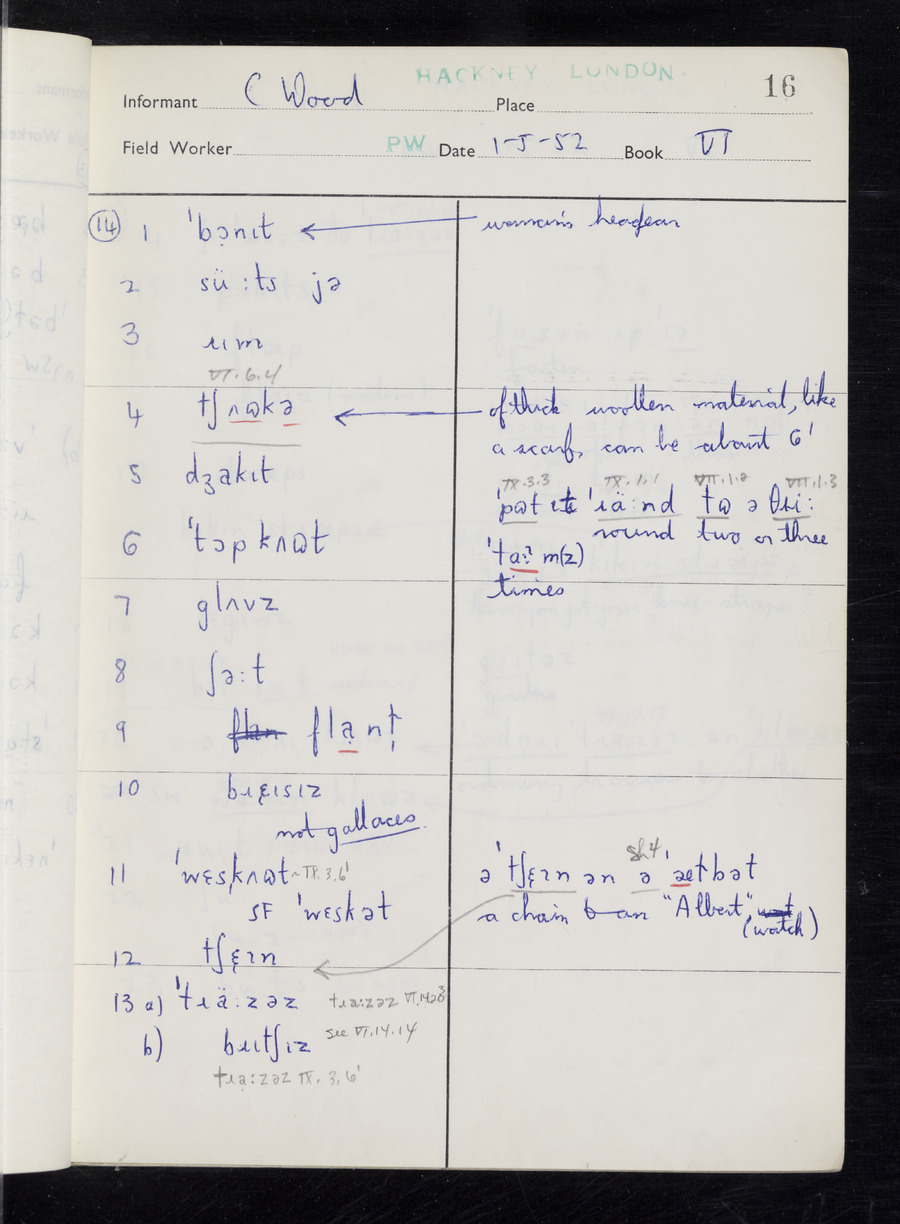 HACKNEY LONDON.
16
Informant C Wood Place
Field Worker PW Date 1-5-52 Book VI
(14) 1 ˈbɔnɪt ← woman's headgear
2 sü:ts jə
3 ɹɪm
VI.6.4
4 tʃʌɷkə ← of thick woollen material, like
a scarf, can be about 6'
IX.3.3 IX.1.1 VII.1.2 VII.1.3
5 dʒakɪt
ˈpɷt ɪt ˈɹä:nd tɷ ə θɹi:
round two or three
6 ˈtɔp kʌɷt
ˈtaːʔ m(z)
times
7 glʌvz
8 ʃə:t
9 flan flạnt
10 bɹɛɪsɪz
not gallaces
11 ˈwɛskʌɷt ~IX.3.6'
SF ˈwɛskət
sh4
ə ˈtʃɛɪn ən ə ˈæɫbət
a chain b an "Albert", wat
(watch)
12 tʃɛɪn
13 a) ˈtɹä:zəz tɹa:zəz VI.14.23
b) bɹɪtʃɪz see VI.14.14
tɹạ:zəz IX.3.6'